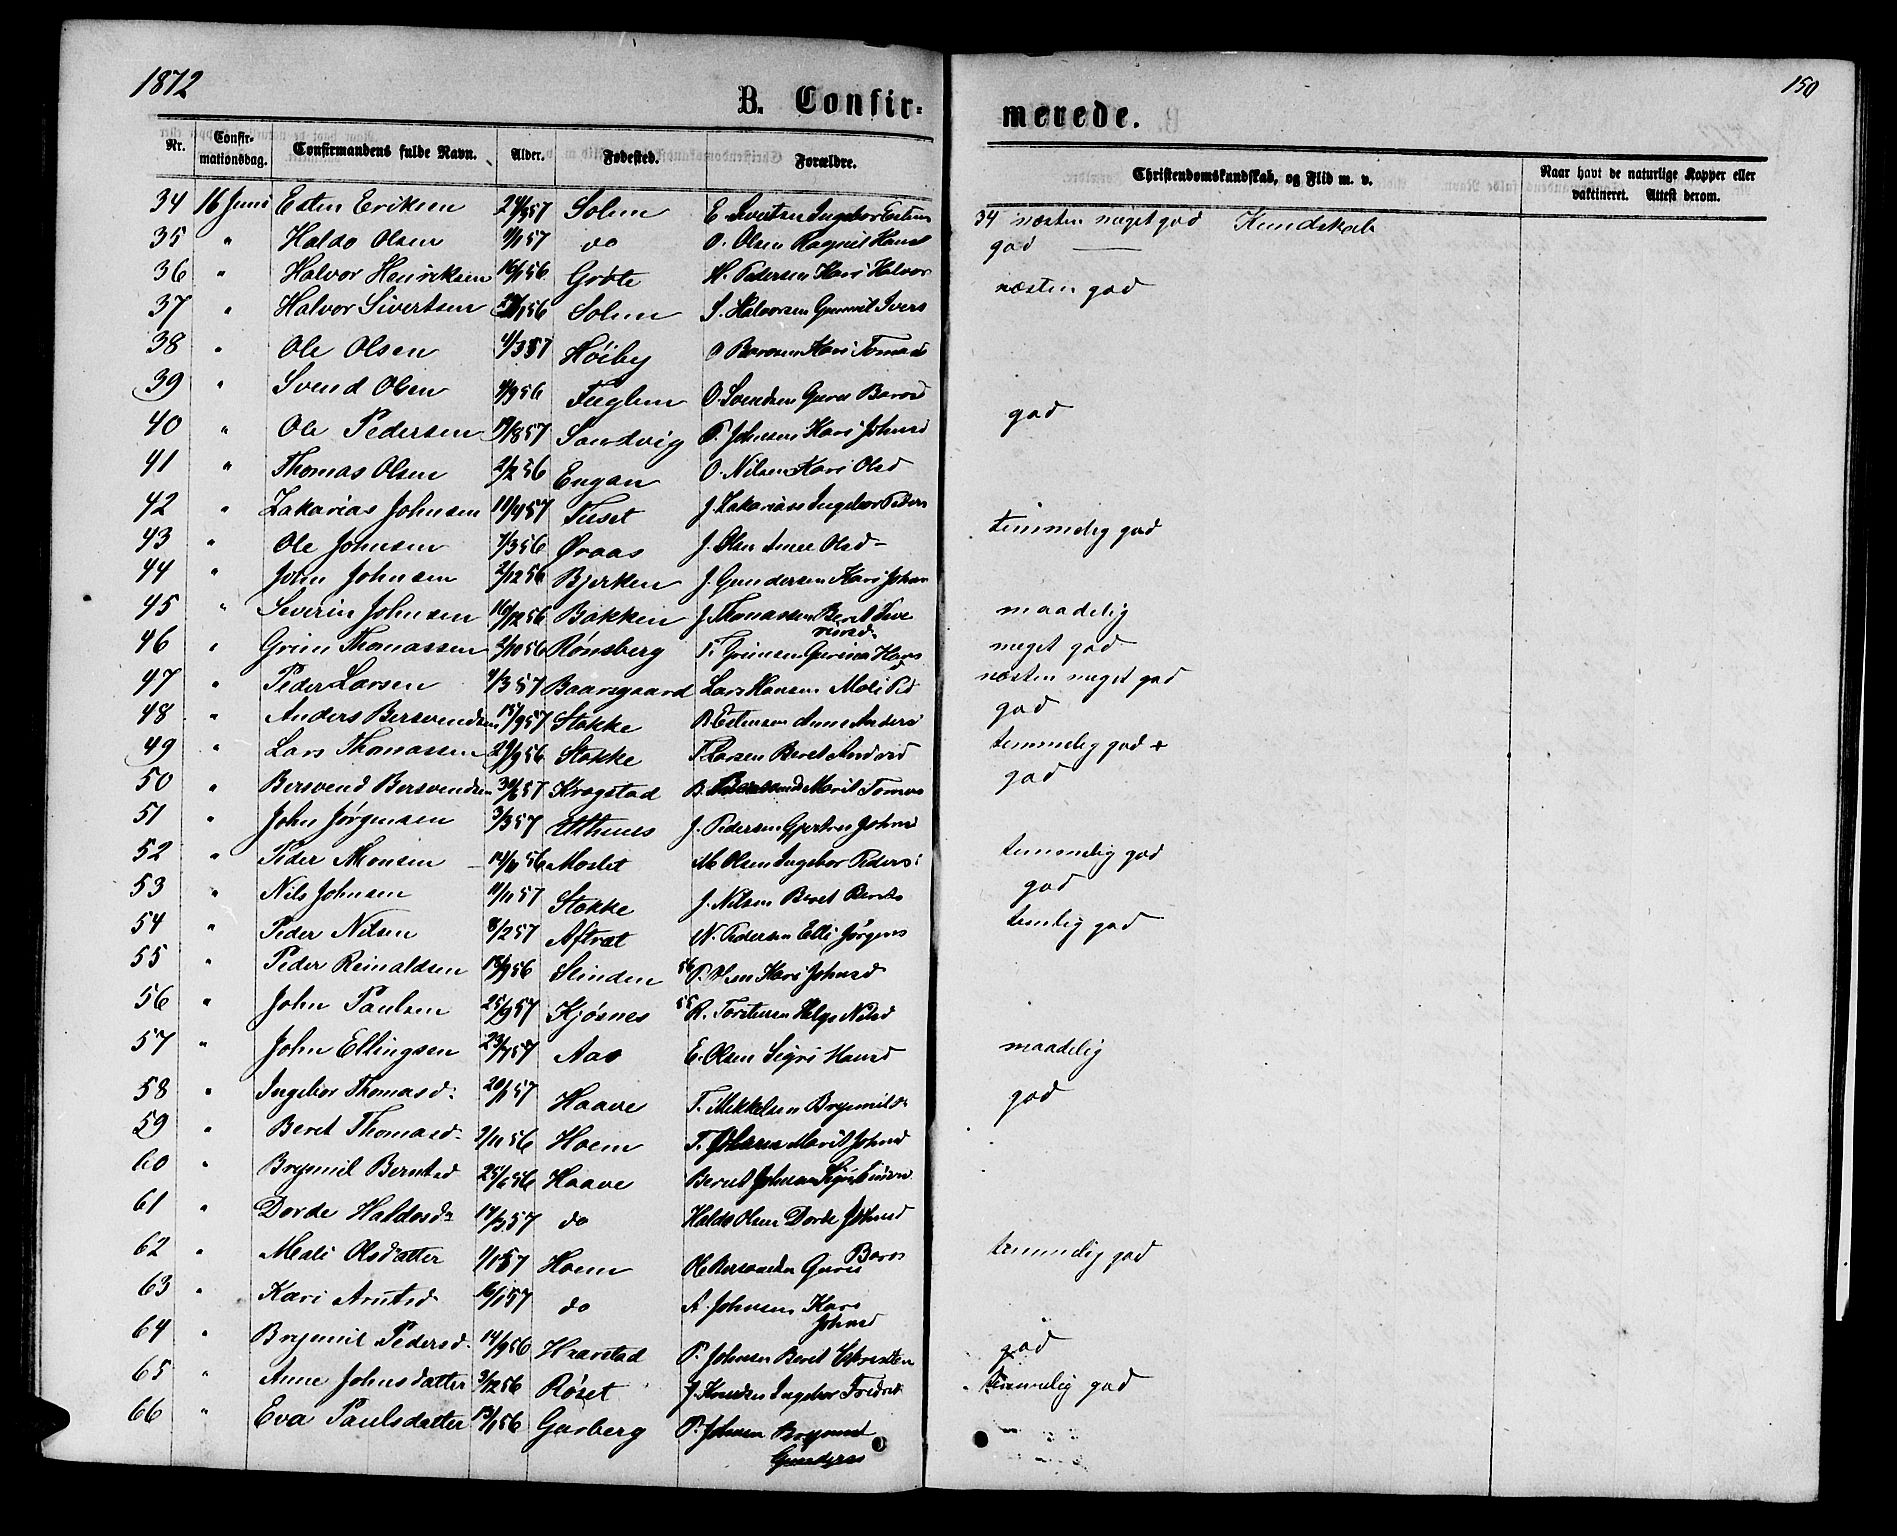 1872
150
B. Confir-
merede.
Nr. Confir-mationsdag. Confirmandens fulde Navn. Alder. Fødested. Forældre.
Christendomskundskab, og Flid m. v. Naar havt de naturlige Kopper eller vaktineret. Attest derom.
34 16 Juni Esten Eriksen Solem E. Sivertsen Ingebor 34 næsten meget god Kundskab
35 " Haldo Olsen do O. Olsen Ragnil god
36 " Halvor Henriksen 16/1 56 Grøte H. Pedersen Kari Halvor næsten god
37 " Halvor Sivertsen Solem S. Halvorsen Gunnil Ivers
38 " Ole Olsen 4/3 57 Høiby O Kari
39 " Svend Olsen 4/9 56 Fuglem O. Svendsen Guru
40 " Ole Pedersen 17/8 57 Sandvig P. Johnsen Kari Johnsd god
41 " Thomas Olsen 2/2 56 Engan O. Nilsen Kari Olsd
42 " Zakarias Johnsen 11/4 57 Tuset J. Zakariass Ingebor Peders
43 " Ole Johnsen 7/3 56 Øraas J. Olsen Olsd temmelig god
44 " John Johnsen 2/12 56 Bjerken J. Gundersen Kari Johns
45 " Severin Johnsen 16/12 56 Bakken J. Thomassen Beret maadelig
46 " Grim Thomassen 2/10 56 Rønsberg T. Grimsen Gurina Hans meget god
47 " Peder Larsen 9/3 57 Baarsgaard Lars Hansen Mali Ped næsten meget god
48 " Anders Bersvendsen 15/9 57 Stokke B. Estensen Anne Anders god
49 " Lars Thomassen 29/9 56 Stokke T. Larsen Beret temmelig god +
50 " Bersvend Bersvendsen Kragstad B. Marit god
51 " John Jørgensen 3/3 57 J. Pedersen Johnsd
52 " Peder Monsen Moslet M Olsen Ingebor Peders: temmelig god
53 " Nils Johnsen 11/11 57 Stokke J. Nilsen Beret god
54 " Peder Nilsen 8/2 57 Aftret N. Pedersen Elli Jørgens temlig god
55 " Peder Reinaldsen Slinden 56 P. Olsen Kari Johnsd
56 " John Paulsen 25/9 57 Kjøsnes 55 R. Torstensen Helge Nilsd
57 " John Ellingsen 23/7 57 Aas E. Olsen Sigri Hansd maadelig
58 " Ingebor Thomasd: 20/1 57 Haave T. Mikkelsen god
59 " Beret Thomasd 2/11 56 Hoem T. Marit Johnsd
60 " Brynnil Berntsd 25/6 56 Haave Bernt Johnsen
61 " Dorde Haldosd 14/3 57 do Haldo Olsen Dorde Johnsd
62 " Mali Olsdatter 1/1 57 Hoem Ole Bersvendsen Guru temmelig god
63 " Kari Arntsd 16/1 57 do A. Johnsen Kari Johnsd
64 " Brynnil Pedersd. 14/9 56 Haarstad P. Johnsen Beret god
65 " Anne Johnsdatter 3/12 56 Røset J. Knudsen Ingebor Fredrik temmelig god
66 " Eva Paulsdatter 13/1 56 Garberg P. Johnsen Brynnil